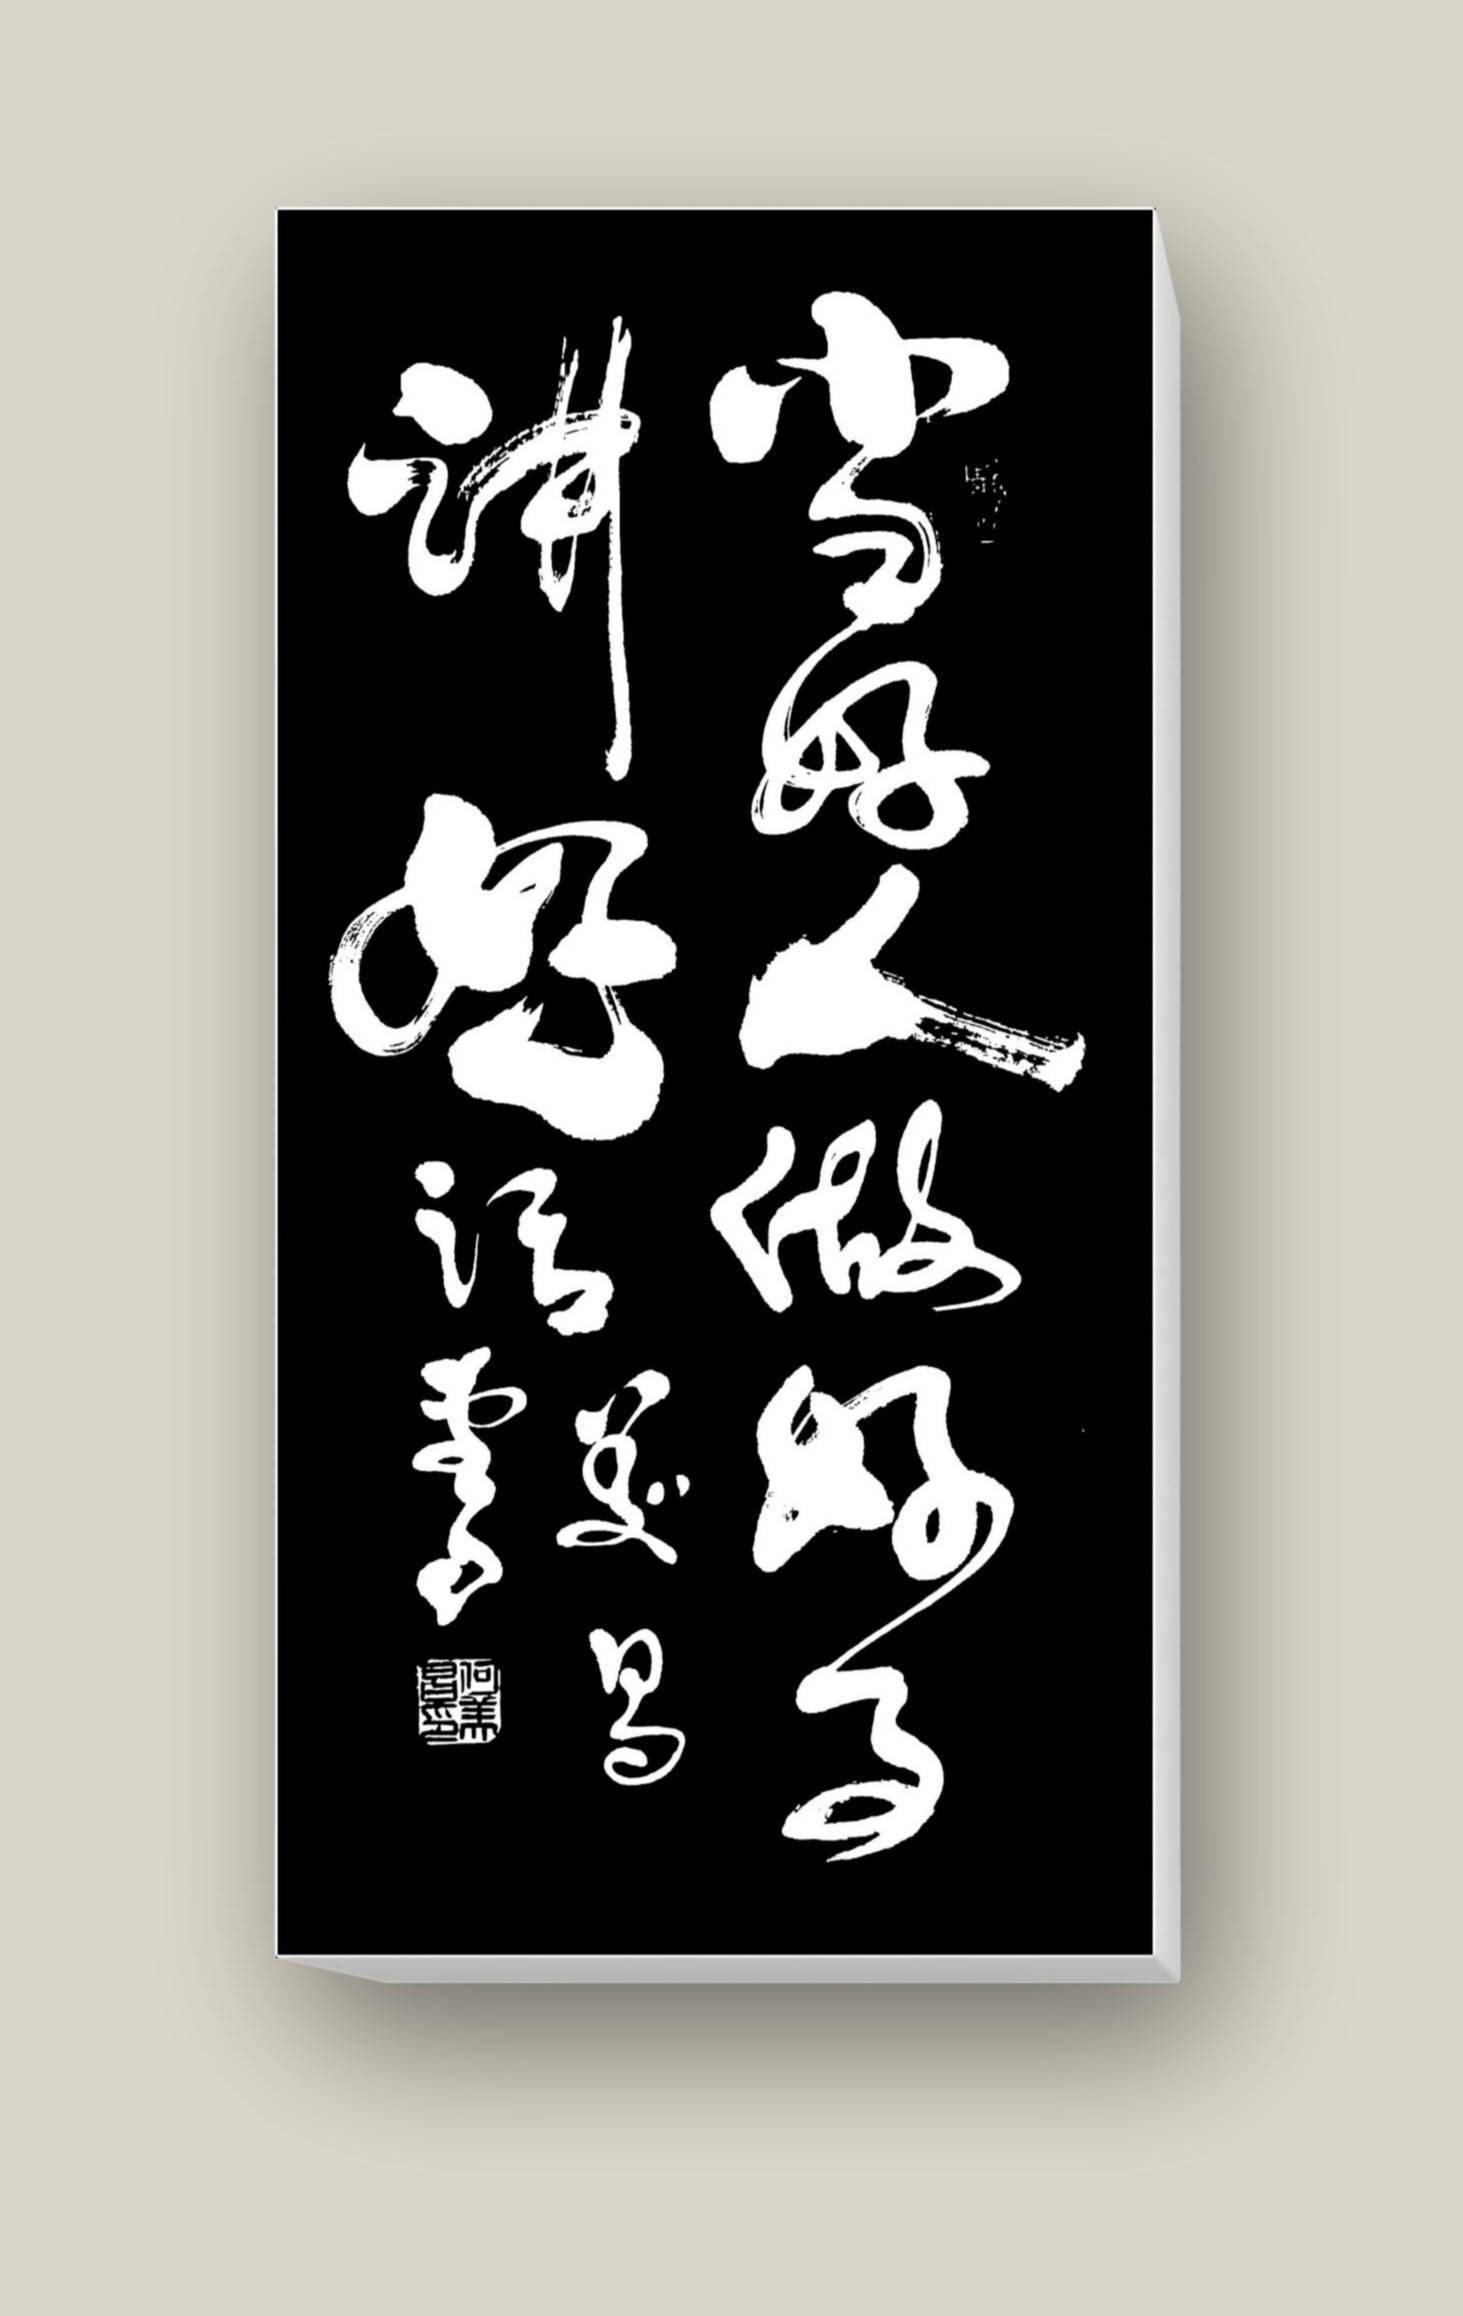 当好人做好事
讲好话
美昌
书
何美